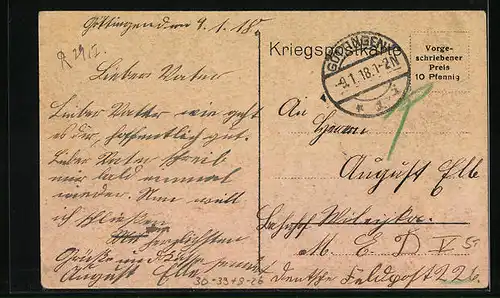 Göttingen den 9.1.18.
Kriegspostkarte
Vorge-
schriebener
Preis
10 Pfennig
GÖTTINGEN
-9.1.18.1-2N
Lieber Vater
Lieber Vater wie geht
es dir, hoffentlich gut.
Lieber Vater schreib
mir bald einmal
wieder. Nun will
ich schließen
herzlichsten
Grüße und Küsse
August Elle
An
Herrn
August Elle
Bahnhof
M. E. D. V
Deutsche Feldpost 226
30-3948-26